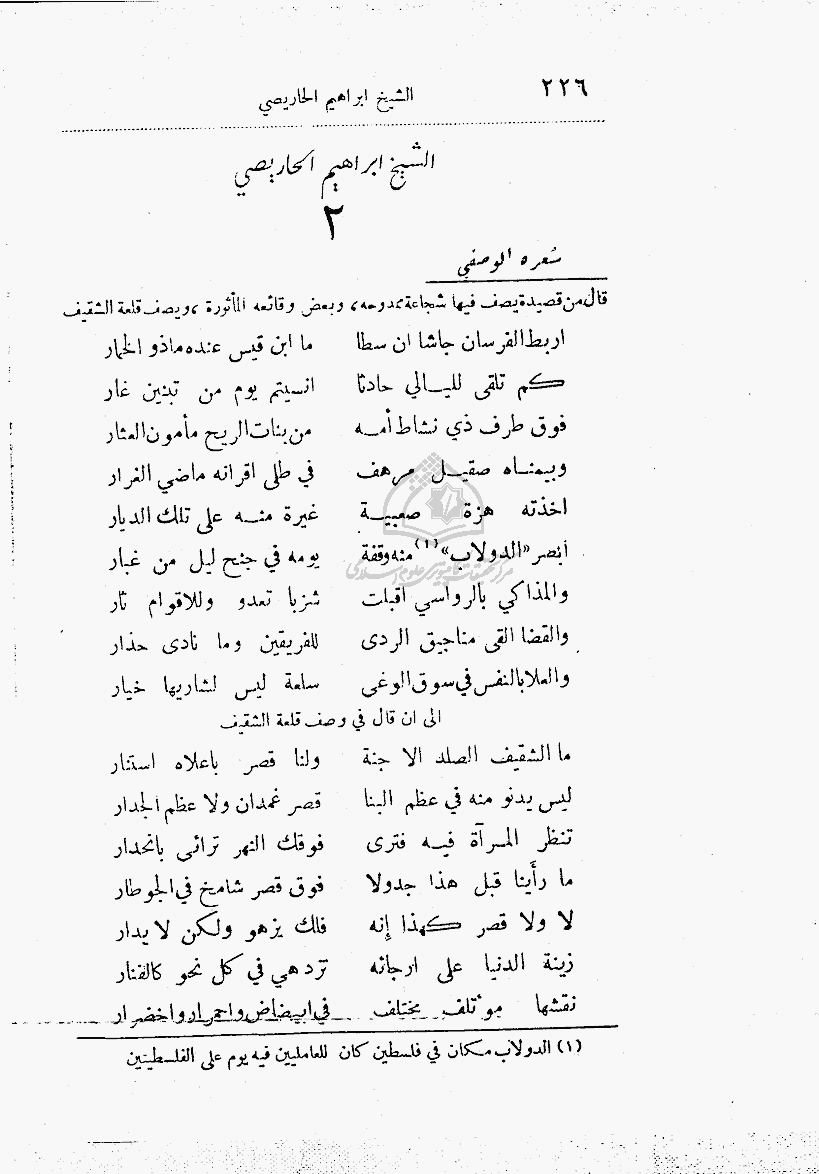 ٢٢٦
الشيخ ابراهيم الحاريصي
الشيخ ابراهيم الحاريصي
٢
شعره الوصفي
قال من قصيدة يصف فيها شجاعة ممدوحه، وبعض وقائعه المأثورة، ويصف قلعة الشقيف
اربط الفرسان جاشا ان سطا ما ابن قيس عنده ماذو الخمار
كم تلقى لليالي حادثا انسيتم يوم من تبنين غار
فوق طرف ذي نشاط أمه من بنات الريح مأمون العثار
وبيمناه صقيل مرهف في طلى اقرانه ماضي الغرار
اخذته هزة صعبية غيرة منه على تلك الديار
أبصر «الدولاب» (١) منه وقفة يومه في جنح ليل من غبار
والمذاكي بالرواسي اقبلت شزبا تعدو وللاقوام ثار
والقضا القى مناجيق الردى للفريقين وما نادى حذار
والعلا بالنفس في سوق الوغى سلعة ليس لشاريها خيار
الى ان قال في وصف قلعة الشقيف
ما الشقيف الصلد الا جنة ولنا قصر باعلاه استنار
ليس يدنو منه في عظم البنا قصر غمدان ولا عظم الجدار
تنظر المرآة فيه فترى فوقك النهر ترائى بانحدار
ما رأينا قبل هذا جدولا فوق قصر شامخ في الجو طار
لا ولا قصر كهذا إنه فلك يزهو ولكن لا يدار
زينة الدنيا على ارجائه تزدهي في كل نحو كالفنار
نقشها مؤتلف مختلف في ابيضاض واحمرار واخضرار
(١) الدولاب مكان في فلسطين كان للعامليين فيه يوم على الفلسطينين